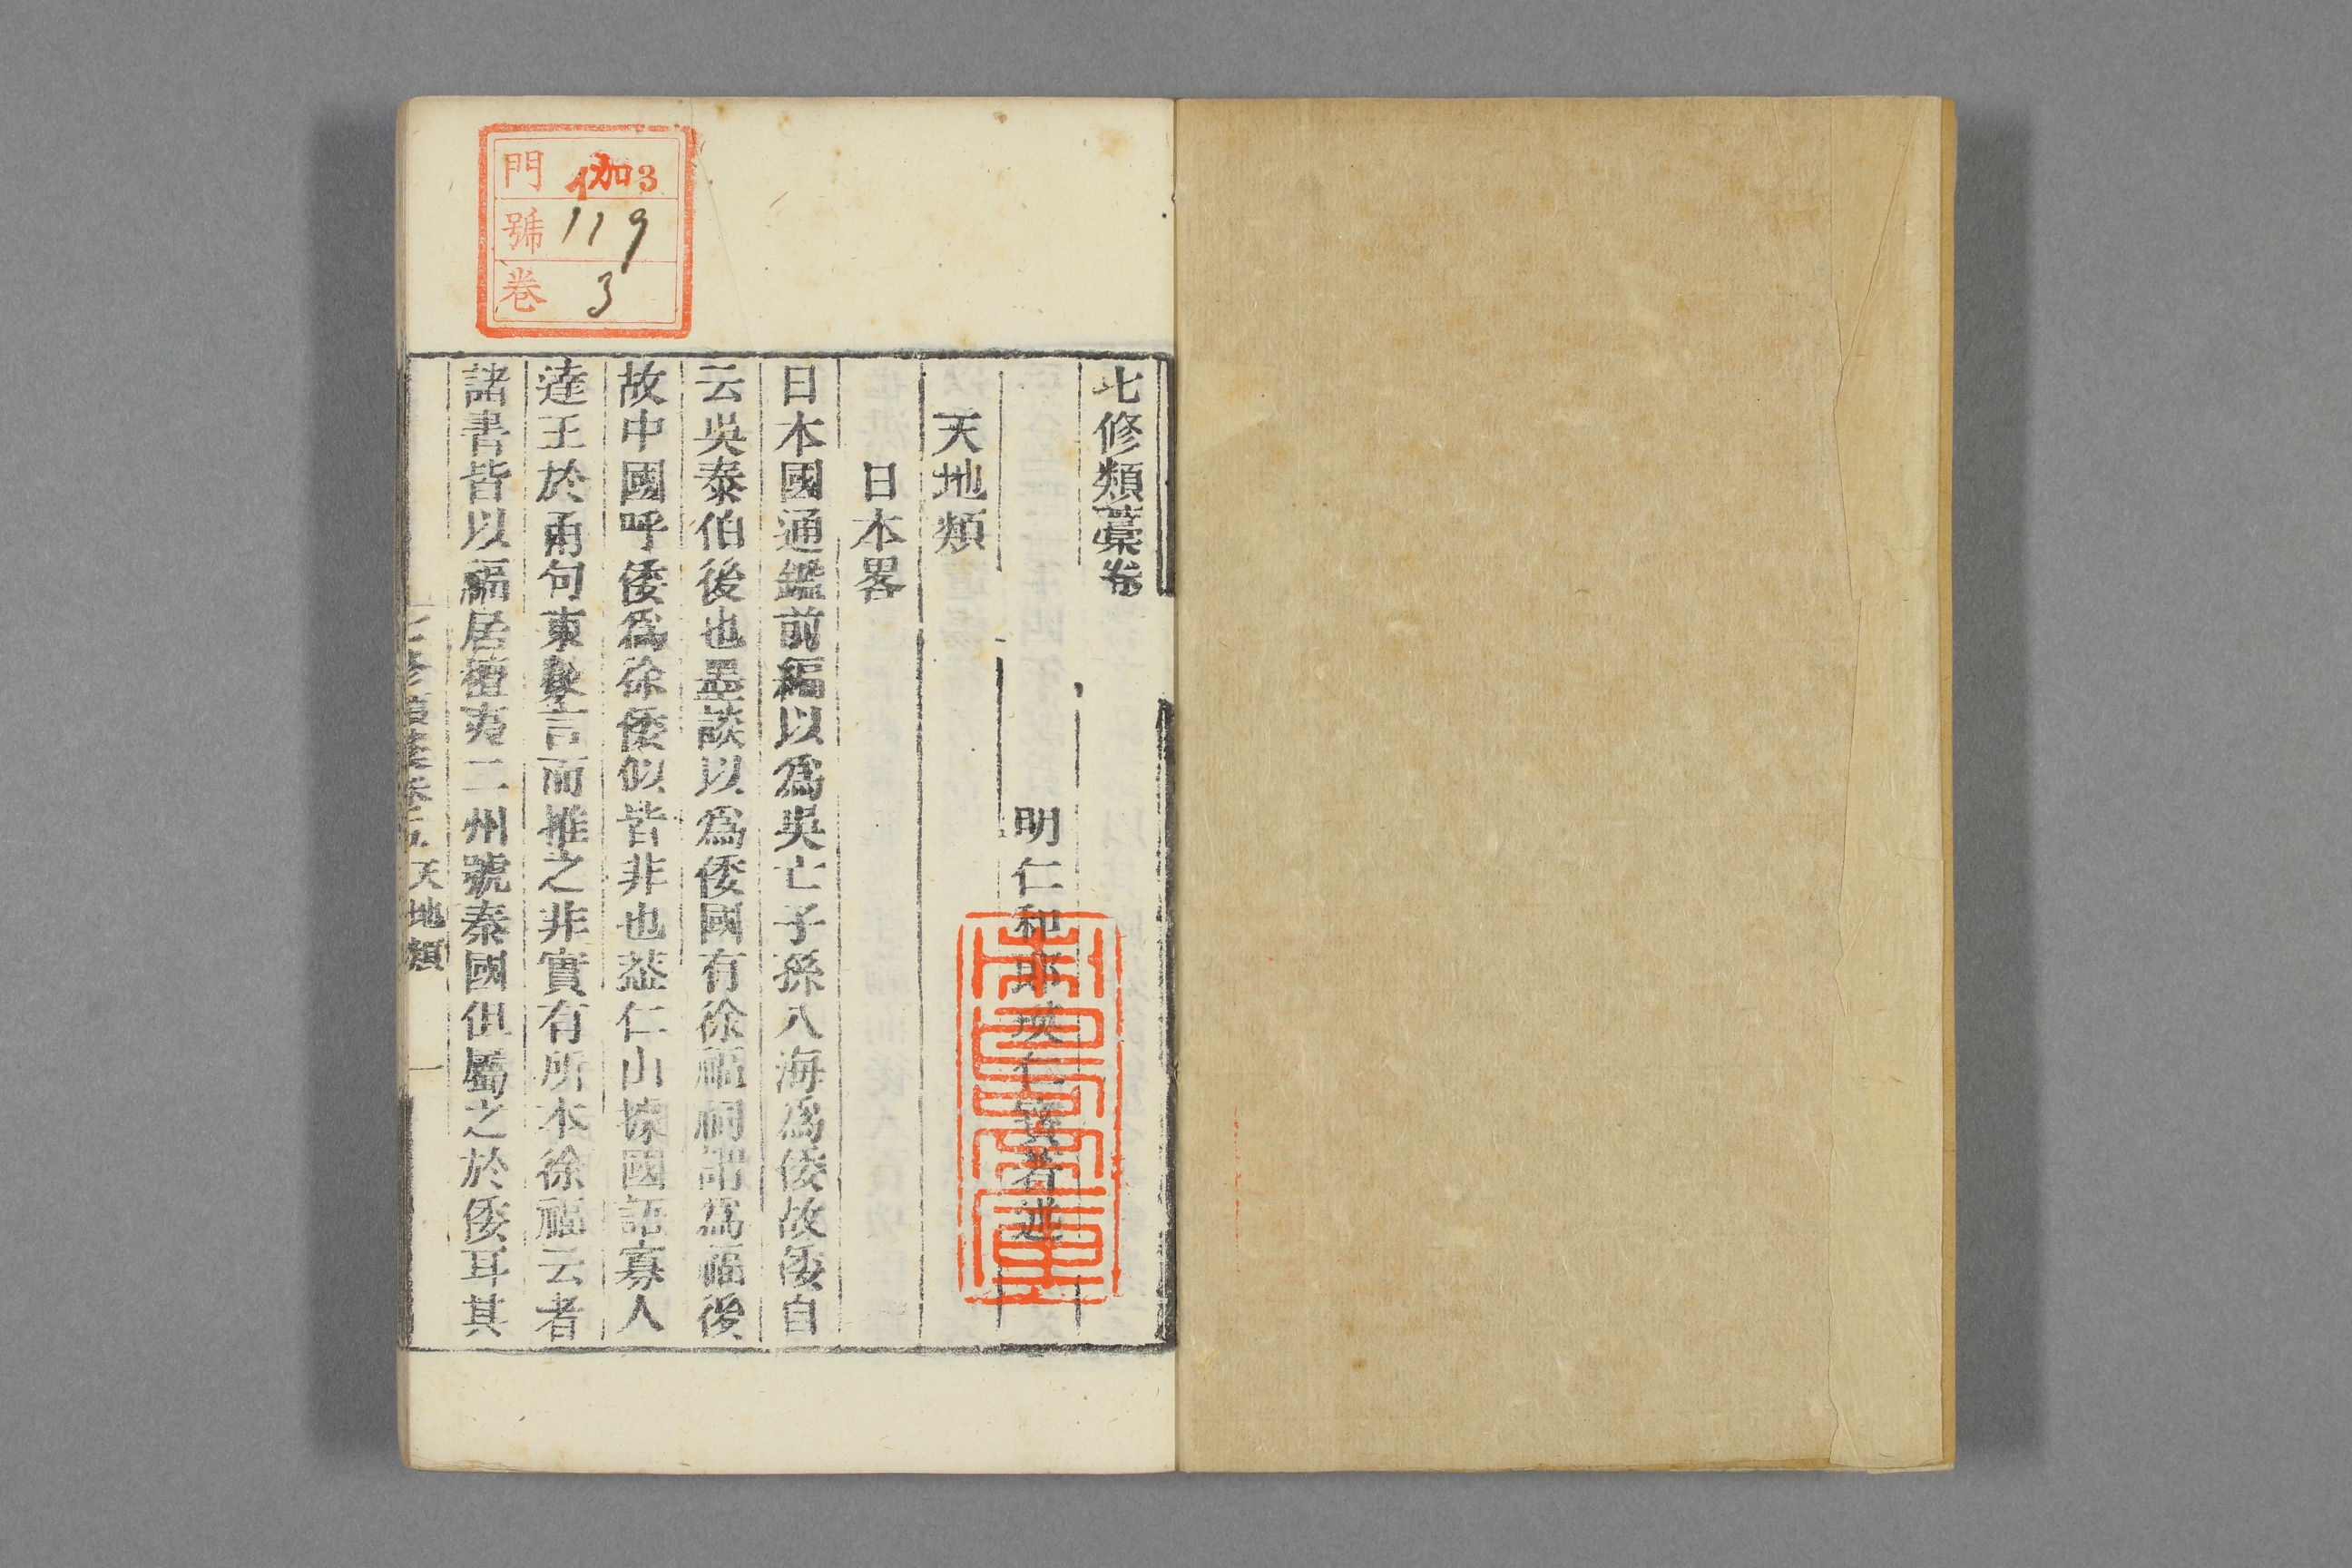 七修類藁卷
明仁和郎瑛仁寶著述
天地類
日本畧
日本國通鑑前編以爲吳亡子孫入海爲倭故倭自
云吳泰伯後也墨談以爲倭國有徐福祠謂爲福後
故中國呼倭爲徐倭似皆非也葢仁山據國語寡人
達王於甬句東數言而推之非實有所本徐福云者
諸書皆以福居亶夷二州號秦國俱屬之於倭耳其
七修類藁卷五 天地類 一
門 伽3
號 119
卷 3